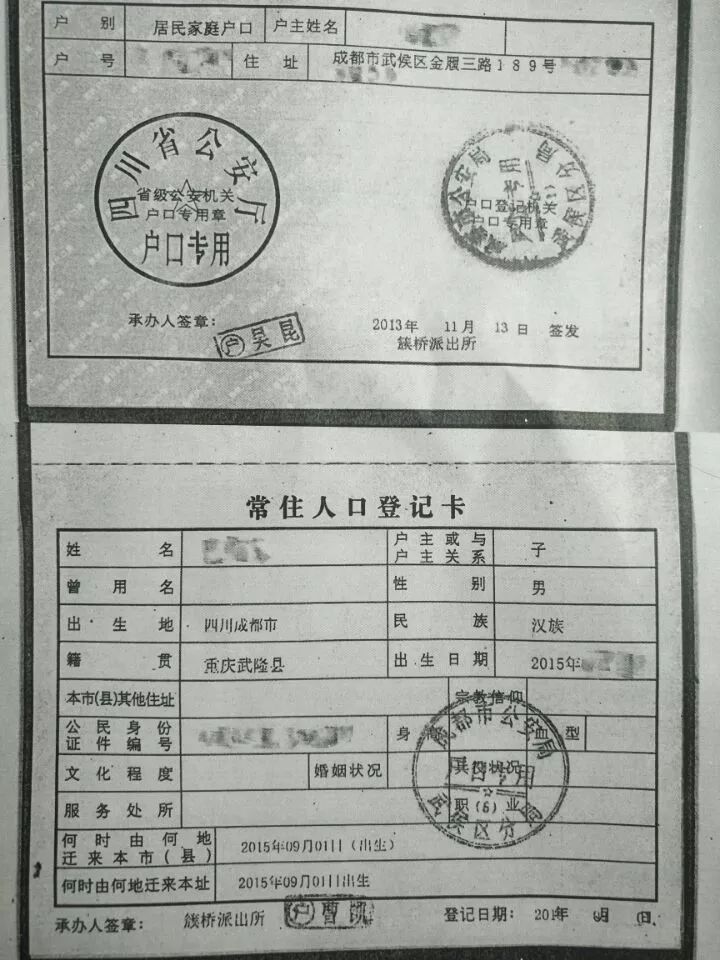 户 别 居民家庭户口 户主姓名
户 号 住 址 成都市武侯区金履三路189号
四川省公安厅
省级公安机关
户口专用章
户口专用
户口登记机关
户口专用章
承办人签章：
户 吴昆
2013年 11月 13日 签发
簇桥派出所
常住人口登记卡
姓 名 户主或与户主关系 子
曾用名 性 别 男
出生地 四川成都市 民 族 汉族
籍 贯 重庆武隆县 出生日期 2015年
本市(县)其他住址 宗教信仰
公民身份证件编号 身 血型
文化程度 婚姻状况 兵役状况
服务处所 职 业
成都市公安局
户口专用
(6)
武侯区分局
何时由何地迁来本市(县) 2015年09月01日（出生）
何时由何地迁来本址 2015年09月01日出生
承办人签章： 簇桥派出所 户 曹凯 登记日期： 201 年 月 日